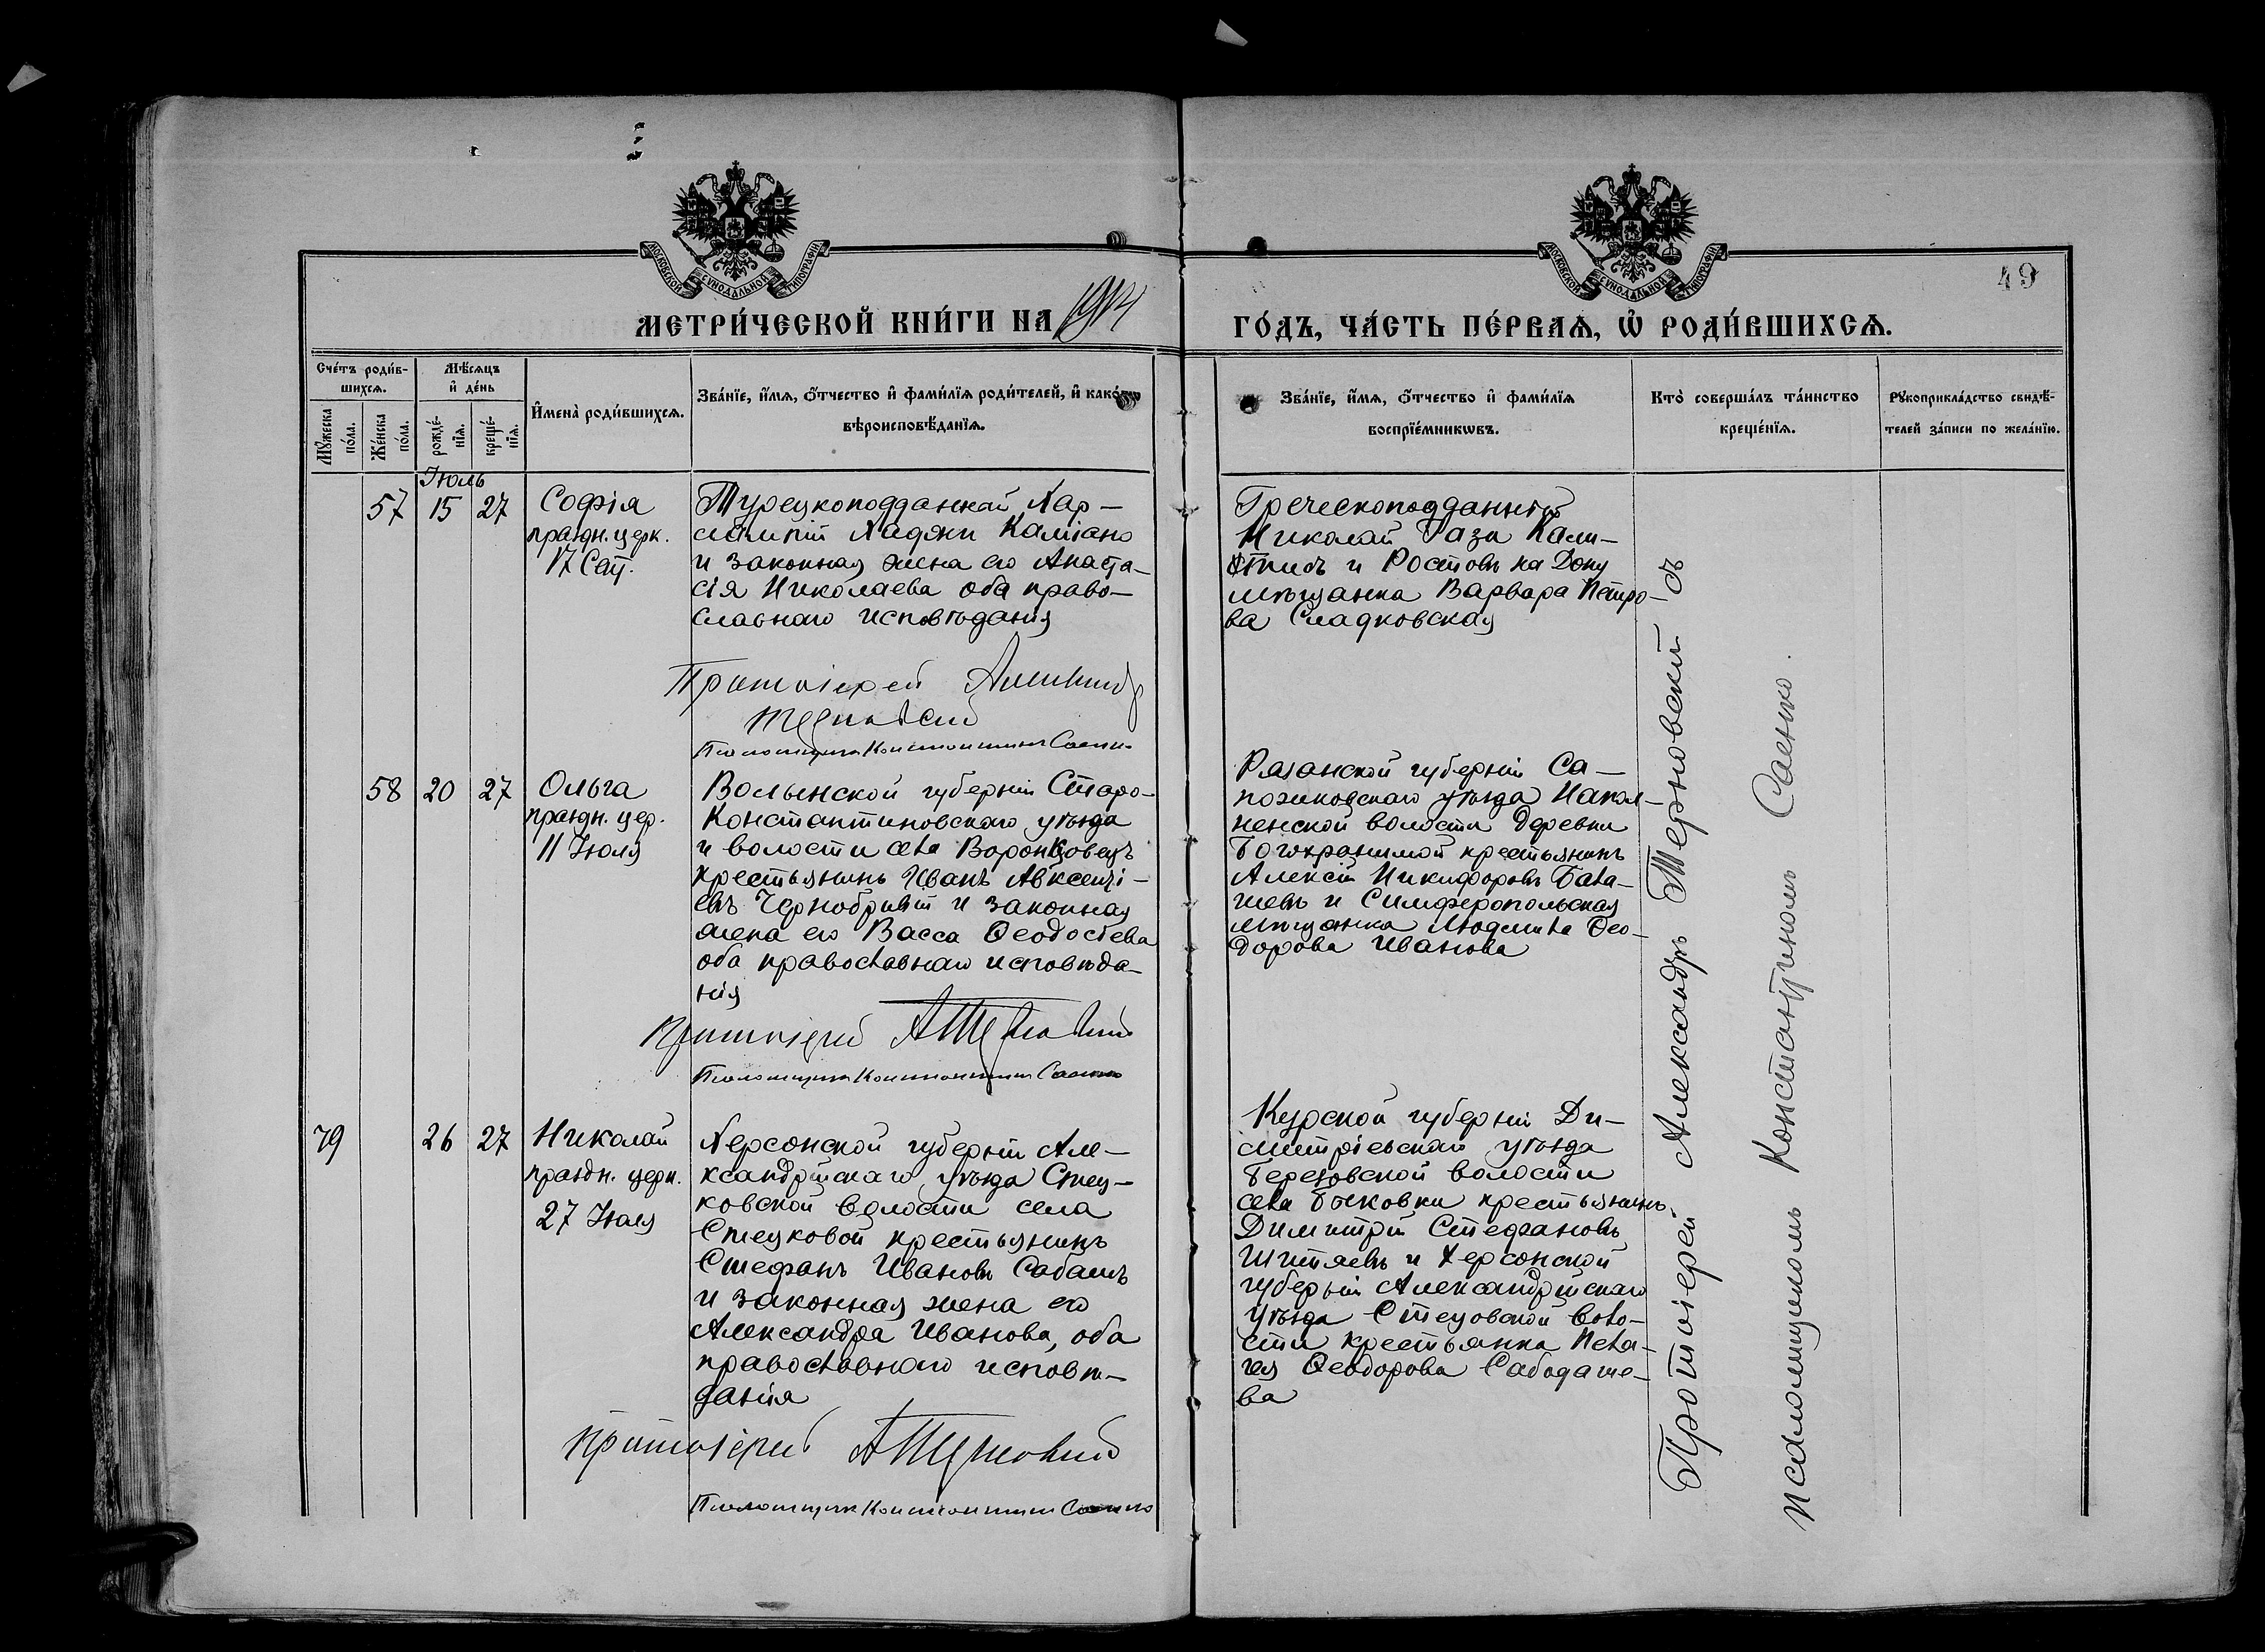 МОСКОВСКОЙ СѴНОДАЛЬНОЙ ТИПОГРАФІИ
МОСКОВСКОЙ СѴНОДАЛЬНОЙ ТИПОГРАФІИ
49
МЕТРИ́ЧЕСКОЙ КНИ́ГИ НА 1914
ГО́ДЪ, ЧА́СТЬ ПЕ́РВАѦ, Ѡ҆ РОДИ́ВШИХСѦ.
Сче́тъ роди́в-
шихсѧ.
Мꙋжеска
по́ла.
Же́нска
по́ла.
Мѣ́сѧцъ
и҆ де́нь
рожде́-
нїѧ.
креще́-
нїѧ.
И҆мена̀ роди́вшихсѧ.
Зва́нїе, и҆́мѧ, ѻ҆́тчество и҆ фами́лїѧ роди́телей, и҆ како́гѡ
вѣроисповѣ́данїѧ.
Зва́нїе, и҆́мѧ, ѻ҆́тчество и҆ фами́лїѧ
воспрїе́мникѡвъ.
Кто̀ соверша́лъ та́инство
креще́нїѧ.
Рꙋкоприкла́дство свидѣ́-
телей за́писи по жела́нїю.
Іюль
57 15 27
Софія
праздн. церк.
17 Сент.
Турецкоподданный Хар-
лампій Хаджи Каміано
и законная жена его Анаста-
сія Николаева оба право-
славнаго исповѣданія
Протоіерей Александр
Терновский
Псаломщик Константин Саенко
Греческоподданный
Николай Газа Кали-
и Ростовъ на Дону
мѣщанка Варвара Петро-
ва Сладковская
58 20 27
Ольга
праздн. цер.
11 Іюля
Волынской губерніи Старо-
Константиновскаго уѣзда
и волости села Воронковецъ
крестьянинъ Иванъ Авксенті-
евъ Чернобривый и законная
жена его Васса Ѳеодосіева
оба православнаго исповѣда-
нія
Протоіерей А Терновский
Псаломщик Константин Саенко
Рязанской губерніи Са-
пожковскаго уѣзда
ненской волости деревни
Богохранимой крестьянинъ
Алексій Никифоровъ Бала-
шевъ и Симферопольская
мѣщанка Людмила Ѳео-
дорова Иванова
79 26 27
Николай
праздн. церк.
27 Іюля
Херсонской губерніи Але-
ксандрійскаго уѣзда Стец-
ковской волости села
Стецковой крестьянинъ
Стефанъ Ивановъ Сабашъ
и законная жена его
Александра Иванова, оба
православнаго исповѣ-
данія
Протоіерей А Терновский
Псаломщик Константин Саенко
Курской губерніи Ди-
митріевскаго уѣзда
Березовской волости
села Быковки крестьянинъ
Димитрій Стефановъ
Шитяевъ и Херсонской
губерніи Александрійскаго
уѣзда Стецовской воло-
сти крестьянка Пела-
гея Ѳеодорова Сабадаше-
ва
Протоіерей Александръ Терновскій съ
псаломщикомъ Константиномъ Саенко.